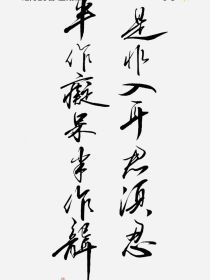 是非入耳君须忍
半作癡呆半作聋